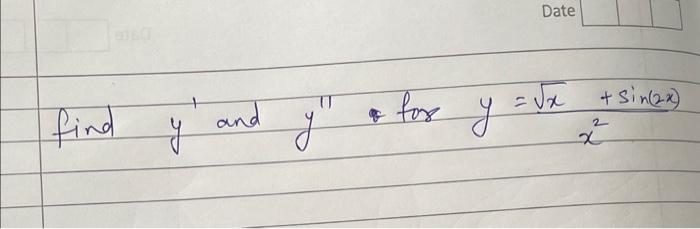 Date
find y' and y'' for y = √x + sin(2x) / x²